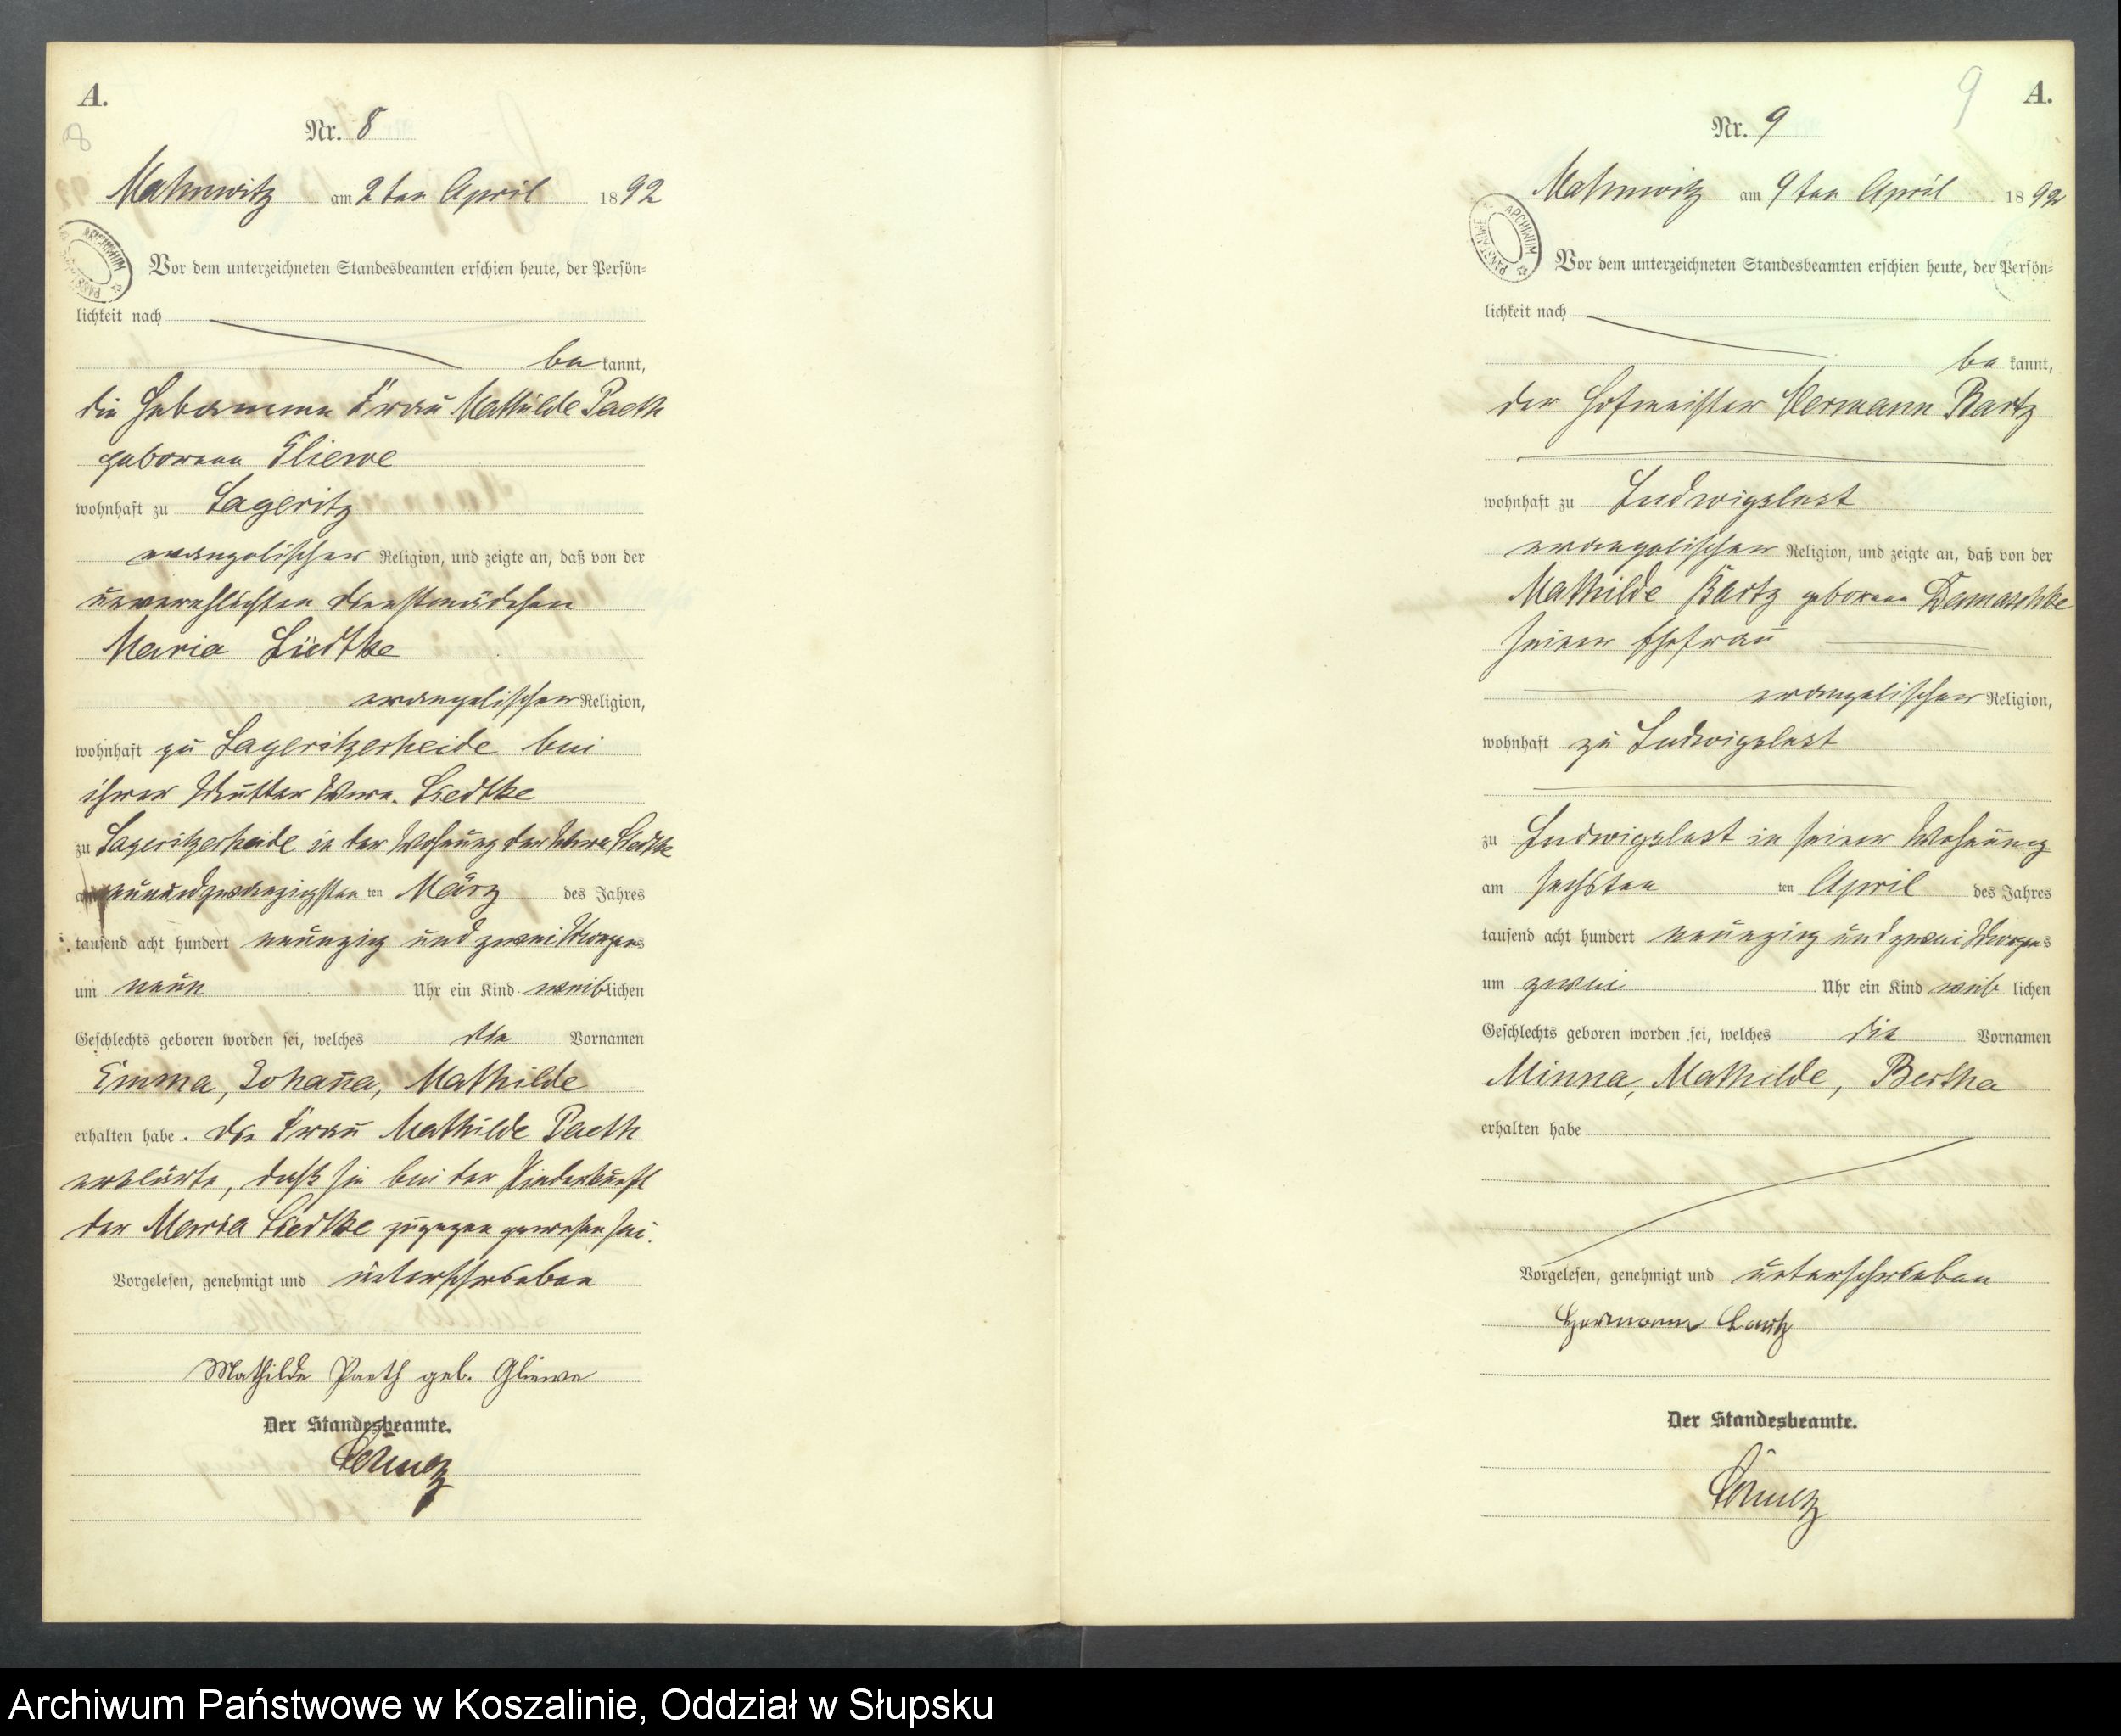 A.
8
Nr. 8
Mahnwitz am 2ten April 1892
Vor dem unterzeichneten Standesbeamten erschien heute, der Persön-
lichkeit nach
be kannt,
die Hebamme Frau Mathilde Paeth
geborene Gliewe
wohnhaft zu Lageritz
evangelischer Religion, und zeigte an, daß von der
unverehlichten Dienstmädchen
Maria Liedtke
evangelischer Religion,
wohnhaft zu Lageritzerheide bei
ihrer Mutter Wwe. Liedtke
zu Lageritzerheide in der Wohnung der Wwe Liedtke
am ten März des Jahres
tausend acht hundert neunzig und zwei Morgens
um neun Uhr ein Kind weiblichen
Geschlechts geboren worden sei, welches die Vornamen
Emma, Johanna, Mathilde
erhalten habe. Die Frau Mathilde Paeth
erklärte, daß sie bei der Niederkunft
der Maria Liedtke zugegen gewesen sei.
Vorgelesen, genehmigt und unterschrieben
Mathilde Paeth geb. Gliewe
Der Standesbeamte.
ARCHIWUM
9
A.
Nr. 9
Mahnwitz am 9ten April 1892
Vor dem unterzeichneten Standesbeamten erschien heute, der Persön-
lichkeit nach
be kannt,
der Hofmeister Hermann Bartz
wohnhaft zu Ludwigslust
evangelischer Religion, und zeigte an, daß von der
Mathilde Bartz geborene Damaschke
seiner Ehefrau
evangelischer Religion,
wohnhaft zu Ludwigslust
zu Ludwigslust in seiner Wohnung
am sechsten ten April des Jahres
tausend acht hundert neunzig und zwei Morgens
um zwei Uhr ein Kind weib lichen
Geschlechts geboren worden sei, welches die Vornamen
Minna, Mathilde, Bertha
erhalten habe
Vorgelesen, genehmigt und unterschrieben
Hermann Bartz
Der Standesbeamte.
ARCHIWUM PAŃSTWOWE
Archiwum Państwowe w Koszalinie, Oddział w Słupsku